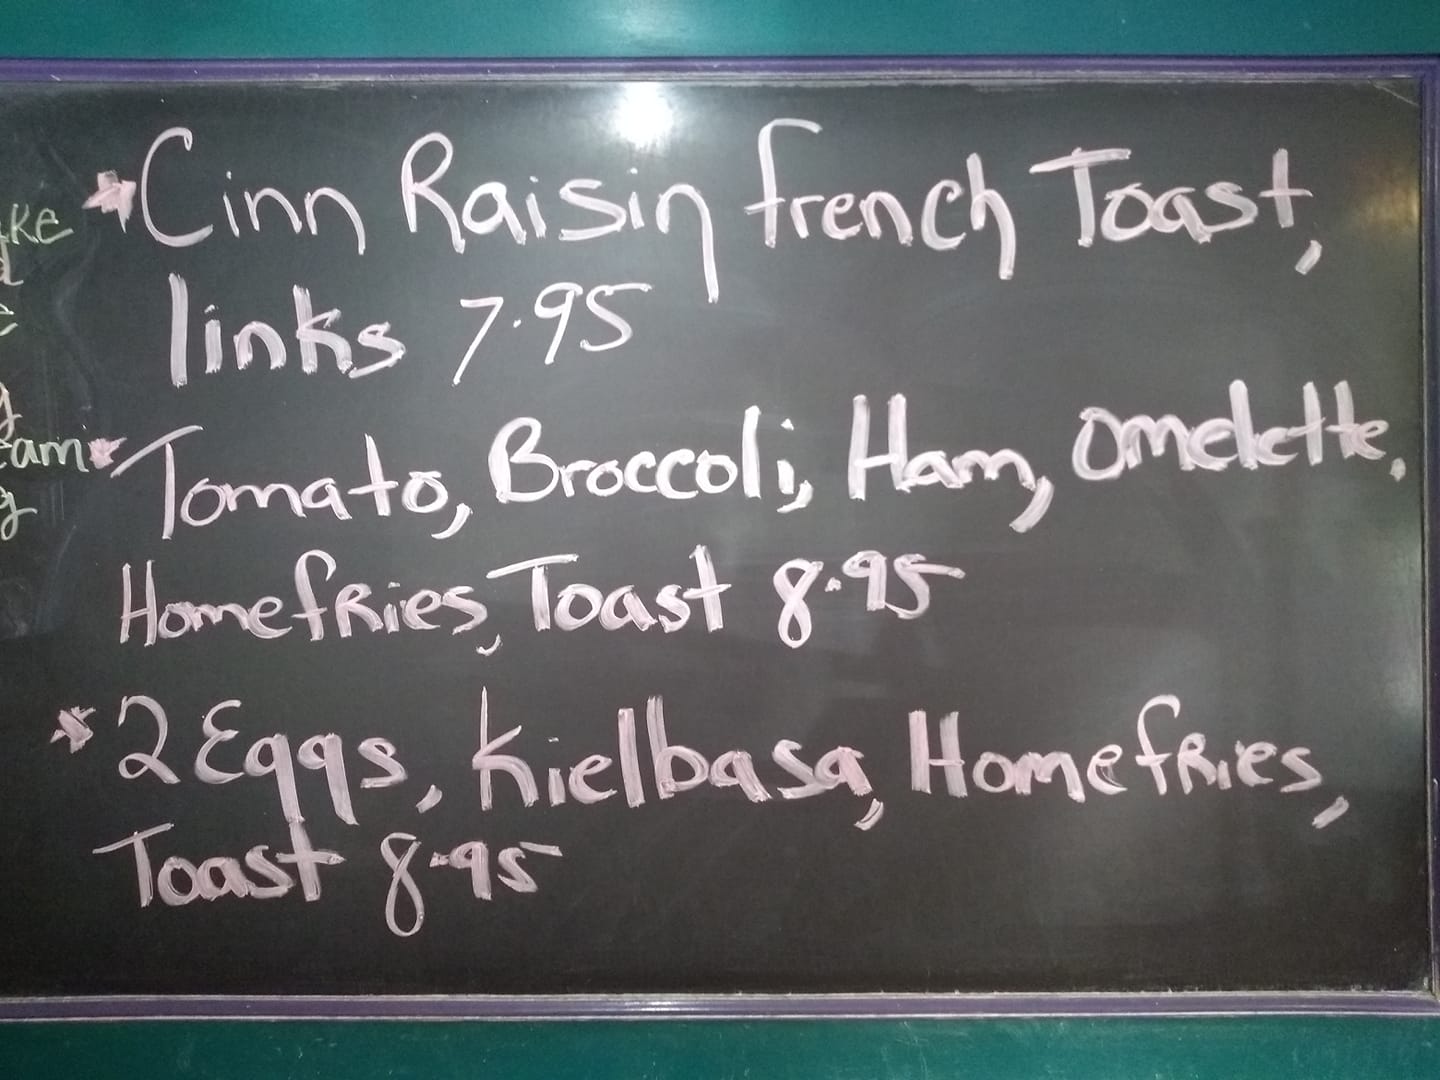 Cinn Raisin french Toast,
links 7.95
Tomato, Broccoli, Ham, Omelette,
Homefries, Toast 8.95
2 Eggs, Kielbasa, Homefries,
Toast 8.95